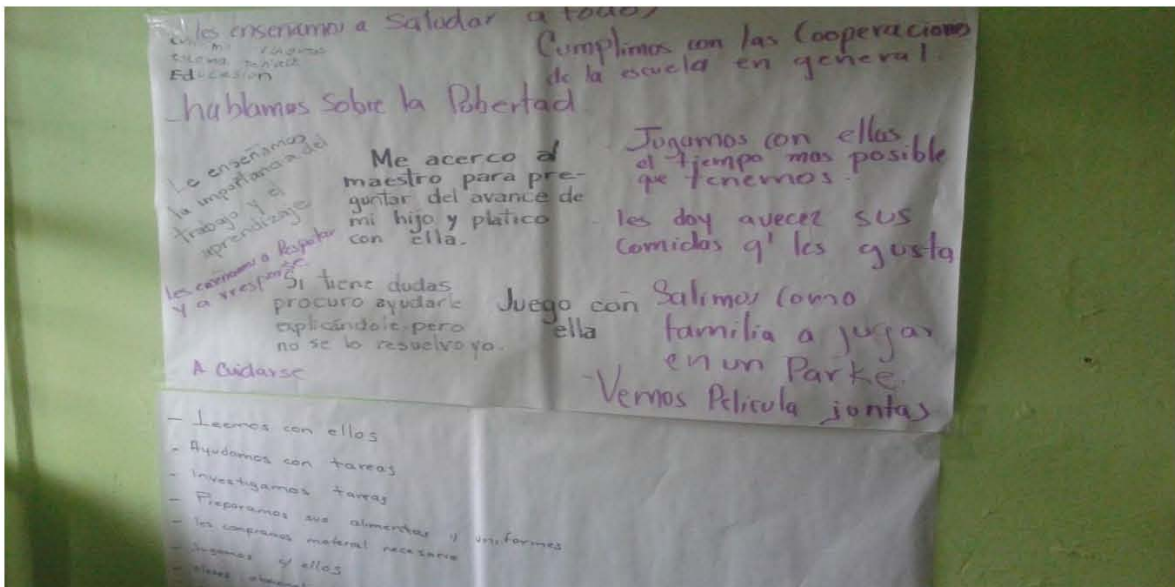 les enseñamos a Saludar a todos
Educasion
Cumplimos con las Cooperaciones
de la escuela en general.
hablamos Sobre la Pobertad
Le enseñamos
la importancia del
trabajo y el
aprendizaje
Me acerco al
maestro para pre-
guntar del avance de
mi hijo y platico
con ella.
Jugamos con ellas
el tiempo mas posible
que tenemos.
les doy avecez sus
Comidas q' les gusta
les enseñamos a Respetar
y a
Si tiene dudas
procuro ayudarle
explicándole pero
no se lo resuelvo yo.
Juego con
ella
Salimos como
familia a jugar
en un Parke.
- Vemos Pelicula juntas
A cuidarse
- Leemos con ellos
- Ayudamos con tareas
- Investigamos tareas
- Preparamos sus alimentos y uniformes
- les compramos material necesario
- Jugamos c/ ellos